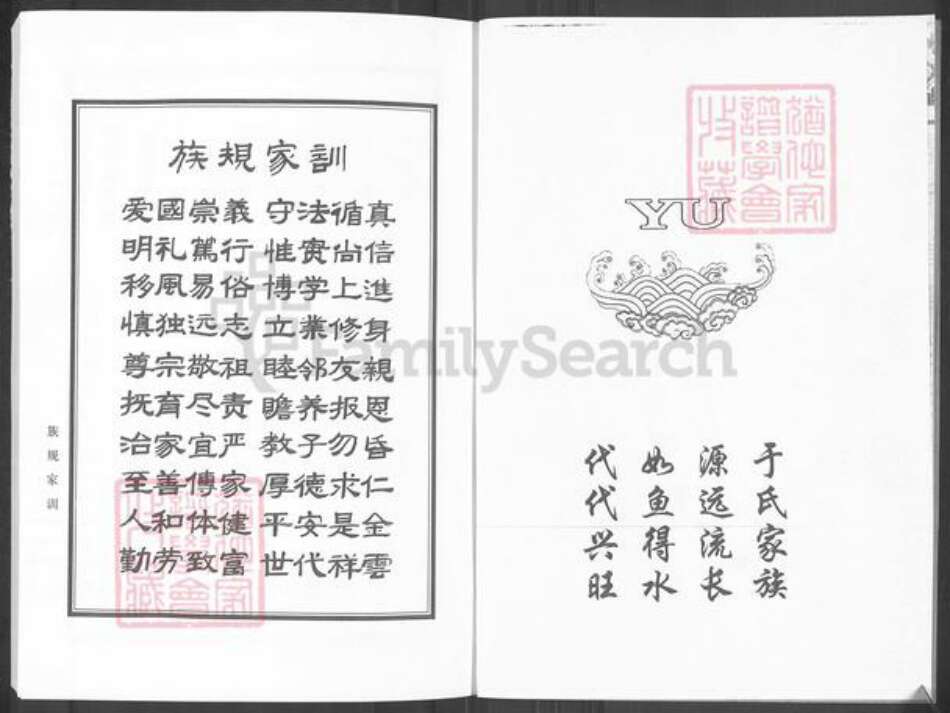 族规家訓
爱國崇義 守法循真
明礼篤行 惟实尚信
移風易俗 博学上進
慎独远志 立業修身
尊宗敬祖 睦邻友親
抚育尽责 贍养报恩
治家宜严 教子勿昏
至善傳家 厚德求仁
人和体健 平安是金
勤劳致富 世代祥雲
族规家训
YU
于氏家族
源远流长
如鱼得水
代代兴旺
猶他家
譜學會
收藏
猶他家
譜學會
收藏
FamilySearch